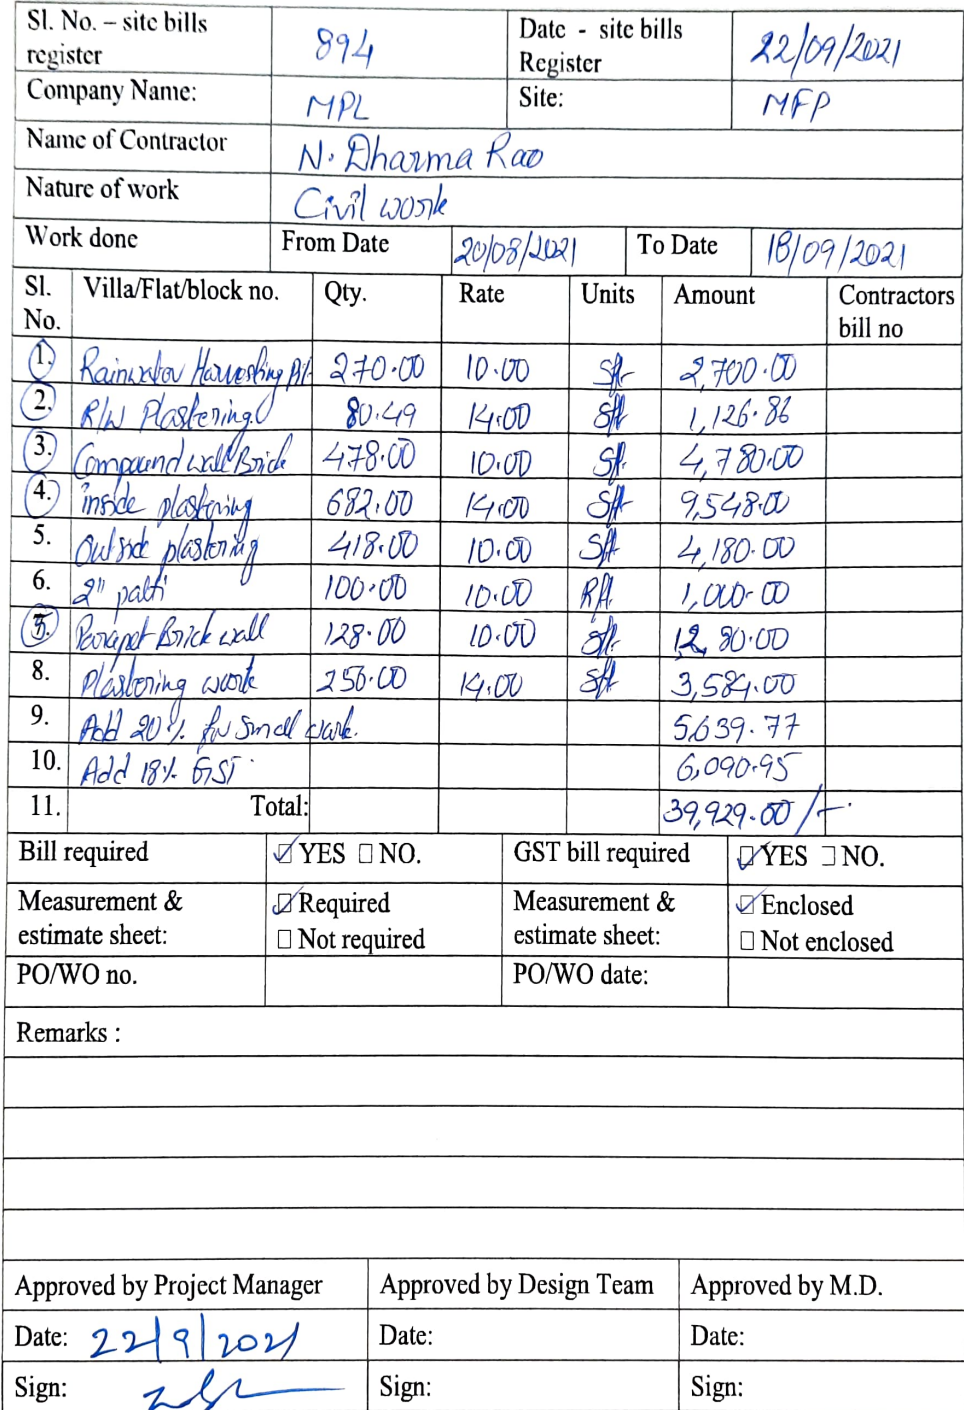 Sl. No. – site bills register 894 Date - site bills Register 22/09/2021
Company Name: MPL Site: MFP
Name of Contractor N. Dharma Rao
Nature of work Civil work
Work done From Date 20/08/2021 To Date 18/09/2021
Sl. No. Villa/Flat/block no. Qty. Rate Units Amount Contractors bill no
1. Rainwater Harvesting Pit 270.00 10.00 Sft 2,700.00
2. R/W Plastering 80.49 14.00 Sft 1,126.86
3. Compound wall Brick 478.00 10.00 Sft 4,780.00
4. inside plastering 682.00 14.00 Sft 9,548.00
5. Outside plastering 418.00 10.00 Sft 4,180.00
6. 2" patti 100.00 10.00 Rft 1,000.00
7. Parapet Brick wall 128.00 10.00 Sft 12,80.00
8. Plastering work 256.00 14.00 Sft 3,584.00
9. Add 20% for Small work. 5,639.77
10. Add 18% GST 6,090.95
11. Total: 39,929.00/-
Bill required YES NO. GST bill required YES NO.
Measurement & estimate sheet: Required Not required Measurement & estimate sheet: Enclosed Not enclosed
PO/WO no. PO/WO date:
Remarks :
Approved by Project Manager Approved by Design Team Approved by M.D.
Date: 22/9/2021 Date: Date:
Sign: Sign: Sign: